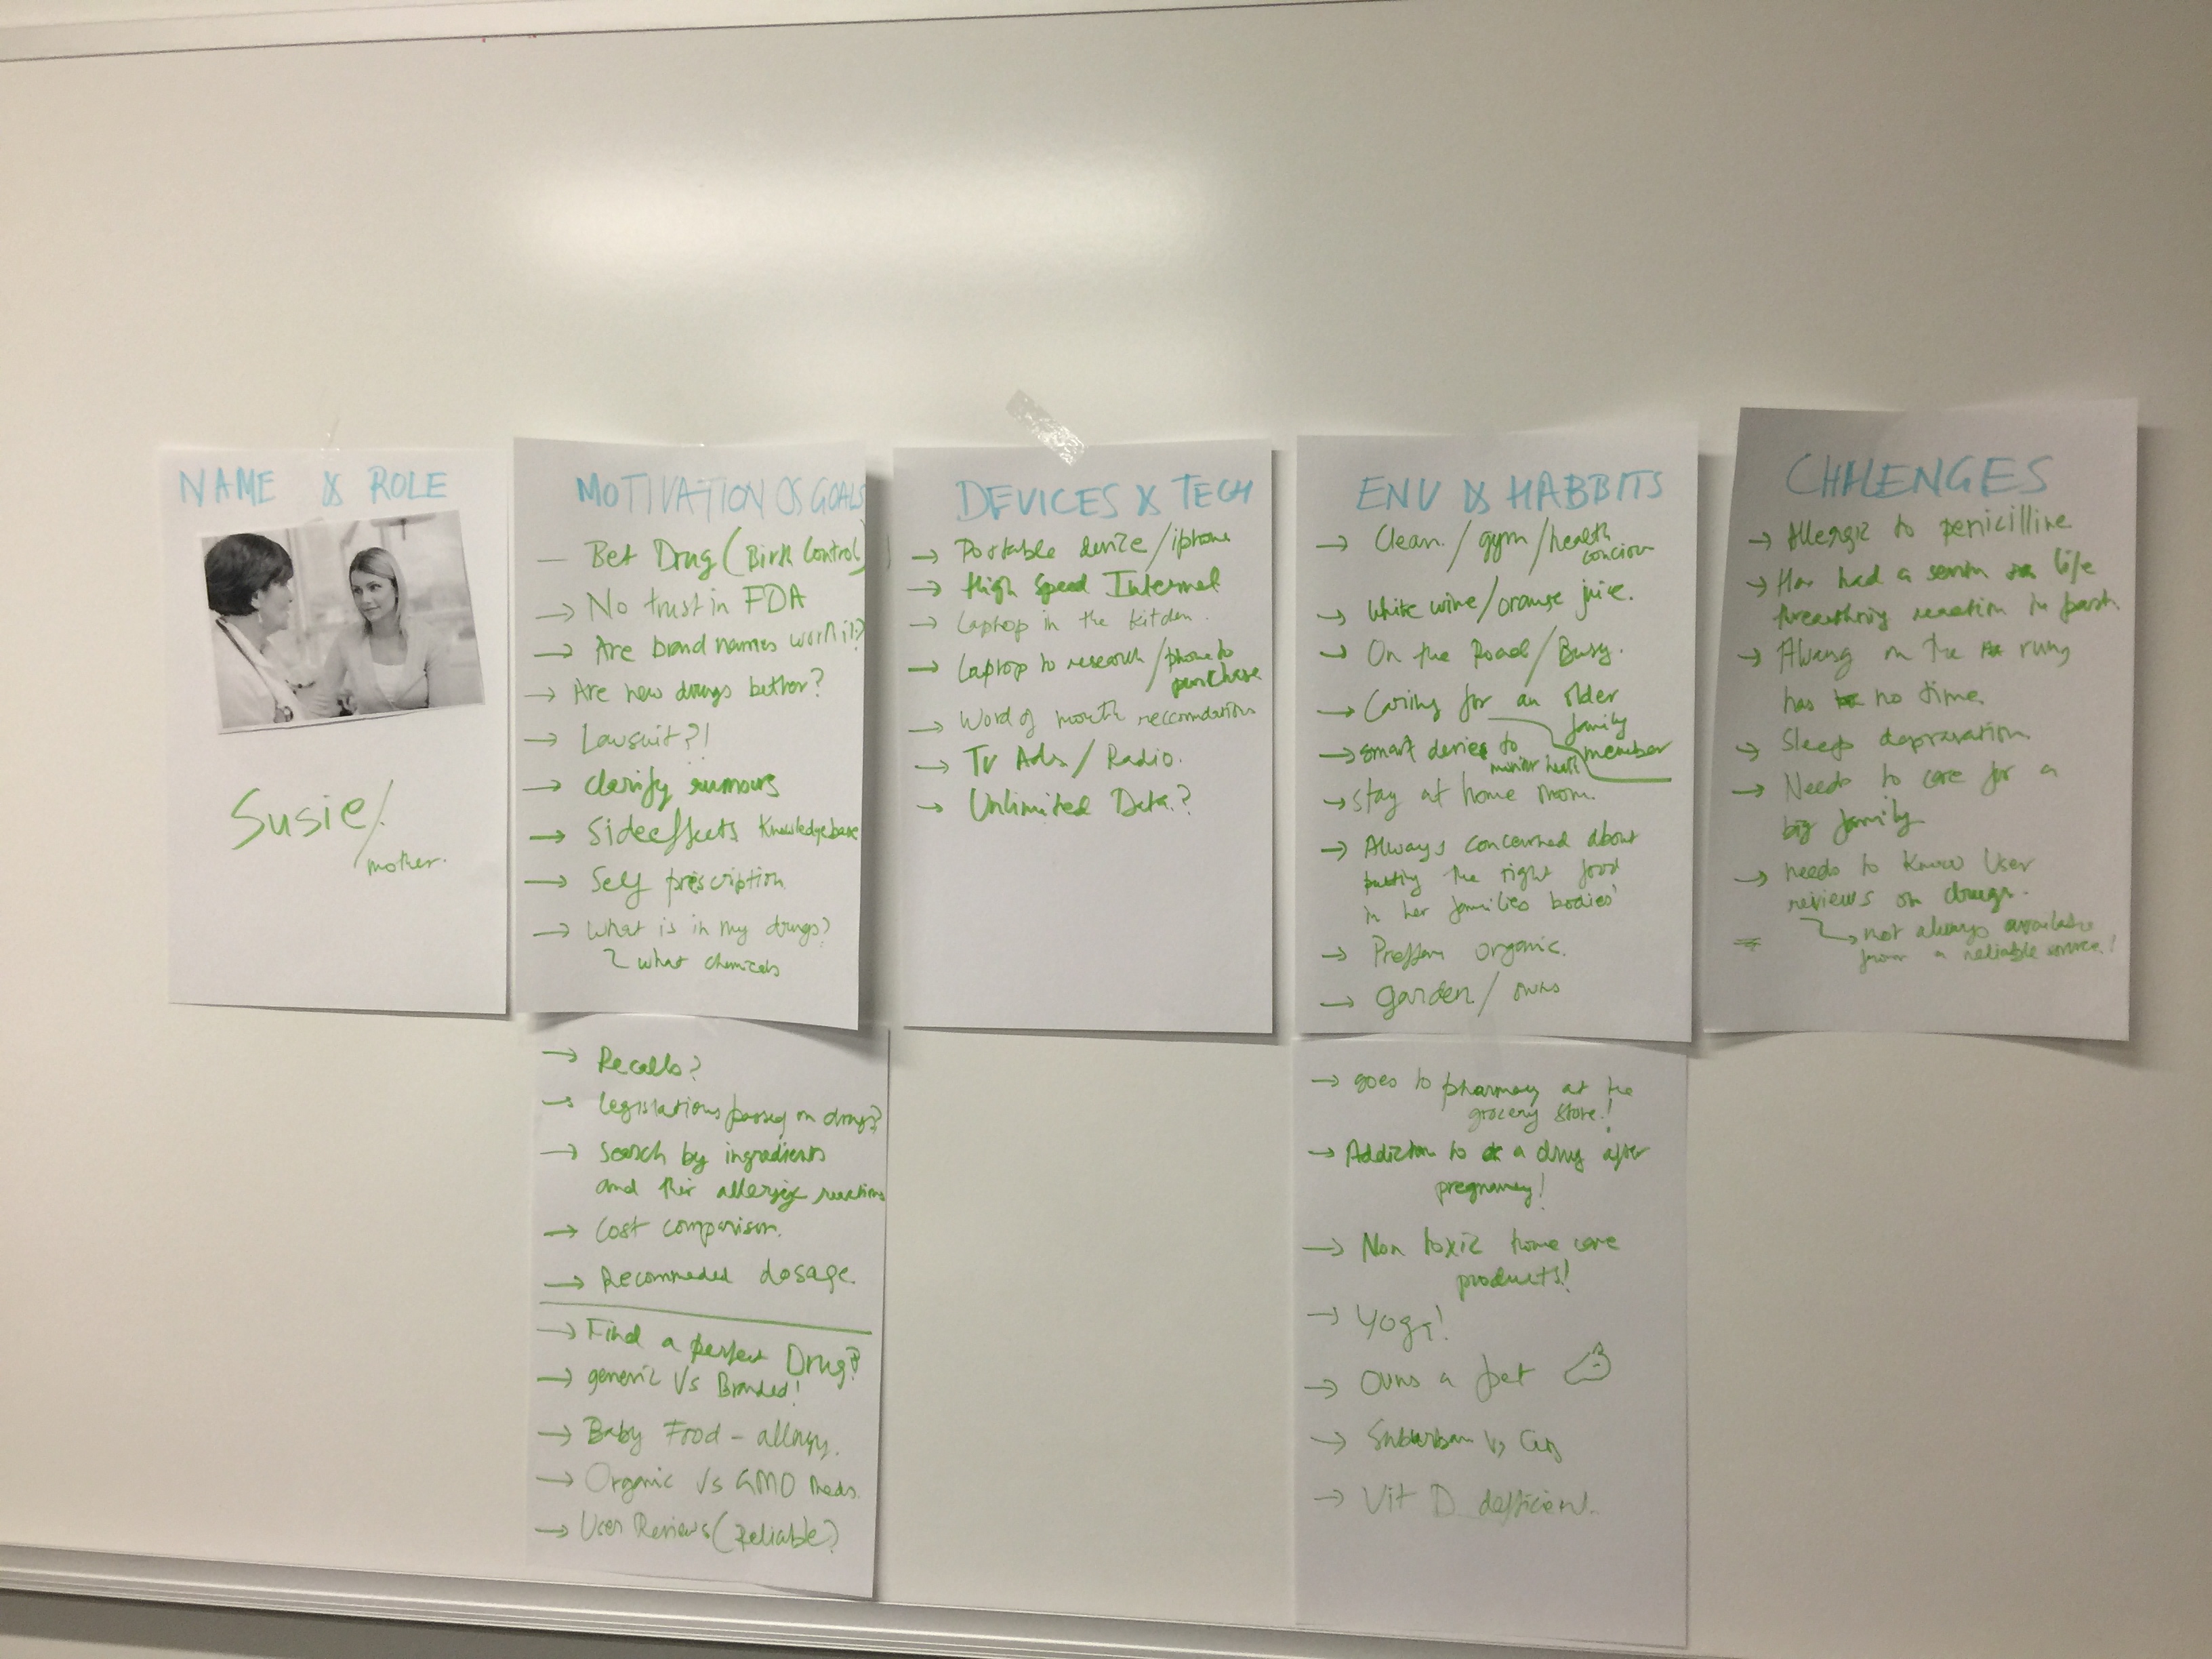 NAME & ROLE
Susie/
mother.
MOTIVATION & GOALS
— Bet Drug (Birth Control)
→ No trust in FDA
→ Are brand names worth it?
→ Are new drugs bether?
→ Lawsuit?!
→ clarify rumours
→ Sideeffects knowledgebase
→ Self prescription
→ What is in my drugs?
what chemicals
→ Recalls?
→ legislations passed on drugs?
→ Search by ingredients
and their allergic reactions
→ Cost comparison.
→ Recommeded dosage.
→ Find a perfect Drug?
→ generic Vs Branded!
→ Baby Food - allergy.
→ Organic Vs GMO Meds.
→ User Reviews (Reliable?)
DEVICES & TECH
→ Portable device/iphone
→ High Speed Internet
→ Laptop in the kitchen.
→ Laptop to research/phone to
purchase
→ Word of mouth
→ TV Ads/ Radio.
→ Unlimited Data.?
ENV & HABBITS
→ Clean./gym/health
→ White wine/orange juice.
→ On the Road/Busy.
→ Caring for an older
family
member
→ smart devices to
→ stay at home mom.
→ Always concerned about
putting the right food
in her families bodies'
→ organic.
→ garden/ owns
→ goes to pharmacy at the
grocery store.!
→ Addiction to a drug after
pregnancy!
→ Non toxic home care
products!
→ Yoga!
→ Owns a pet
→ Suburban Vs City
→ Vit D defficient.
CHALENGES
→ Allergic to penicilline
→ Has had a life
reaction in past.
→ Always on the rung
has no time.
→ Sleep
→ Needs to care for a
big family
→ needs to know User
reviews on drugs.
→ not always available
from a reliable source!